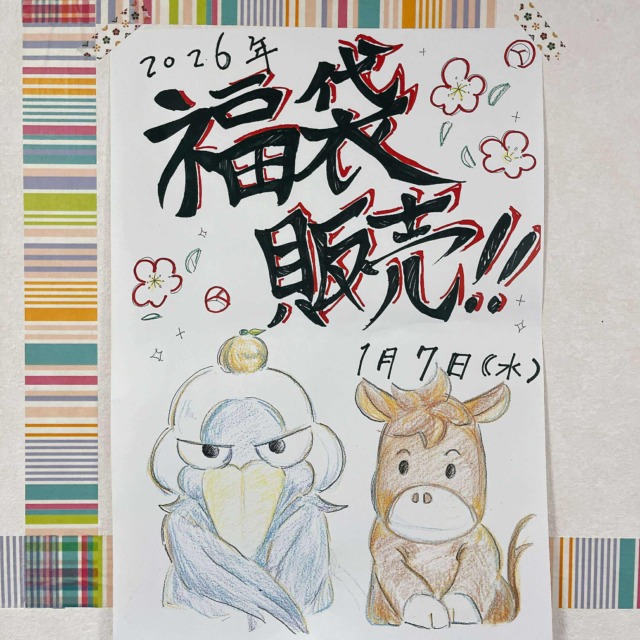 2026年
福袋
販売!!
1月7日(水)